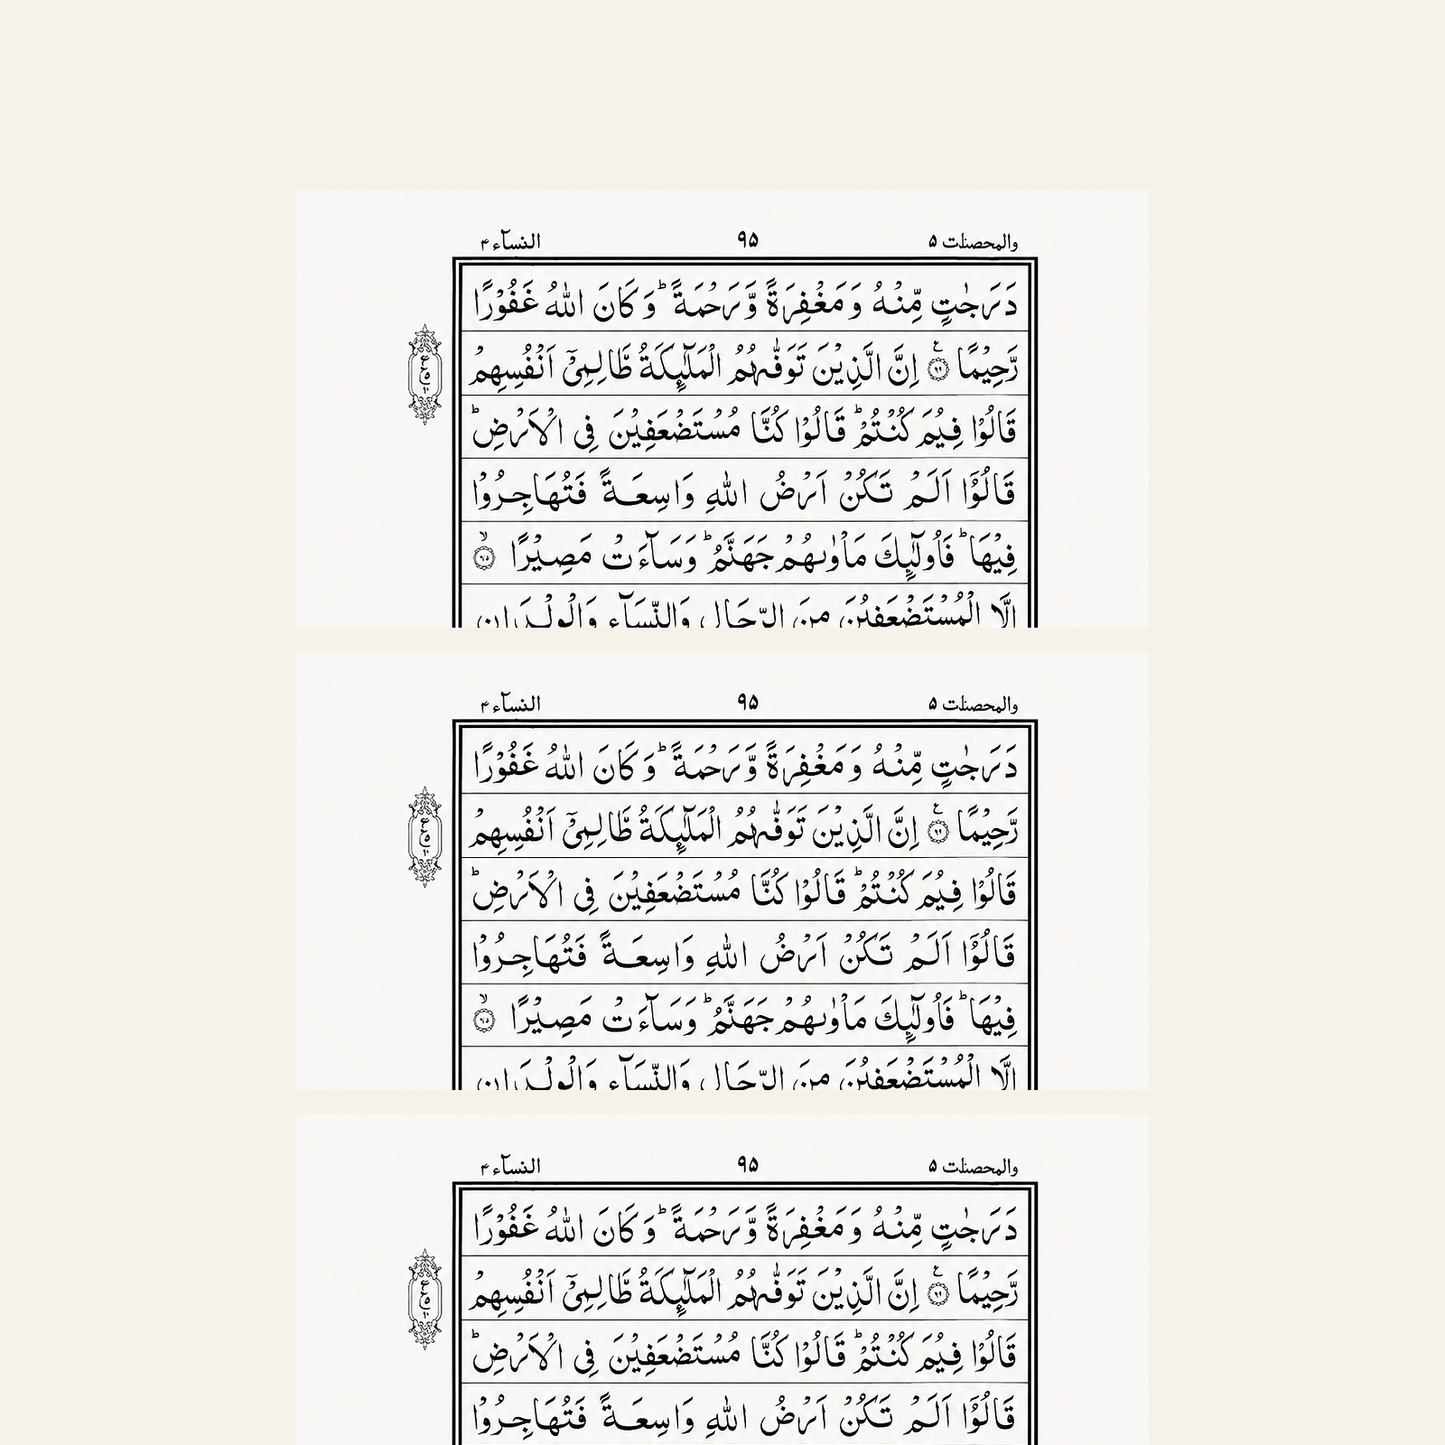 والمحصنت ۵ ۹۵ النسآء ۴
دَرَجٰتٍ مِّنْهُ وَمَغْفِرَةً وَّرَحْمَةً ؕ وَكَانَ اللّٰهُ غَفُوْرًا
رَّحِيْمًا اِنَّ الَّذِيْنَ تَوَفّٰىهُمُ الْمَلٰٓئِكَةُ ظَالِمِیْۤ اَنْفُسِهِمْ
قَالُوْا فِيْمَ كُنْتُمْ ؕ قَالُوْا كُنَّا مُسْتَضْعَفِيْنَ فِی الْاَرْضِ ؕ
قَالُوْۤا اَلَمْ تَكُنْ اَرْضُ اللّٰهِ وَاسِعَةً فَتُهَاجِرُوْا
فِيْهَا ؕ فَاُولٰٓئِكَ مَاْوٰىهُمْ جَهَنَّمُ ؕ وَسَآءَتْ مَصِيْرًا ۙ
اِلَّا الْمُسْتَضْعَفِيْنَ مِنَ الرِّجَالِ وَالنِّسَآءِ وَالْوِلْدَانِ
والمحصنت ۵ ۹۵ النسآء ۴
دَرَجٰتٍ مِّنْهُ وَمَغْفِرَةً وَّرَحْمَةً ؕ وَكَانَ اللّٰهُ غَفُوْرًا
رَّحِيْمًا اِنَّ الَّذِيْنَ تَوَفّٰىهُمُ الْمَلٰٓئِكَةُ ظَالِمِیْۤ اَنْفُسِهِمْ
قَالُوْا فِيْمَ كُنْتُمْ ؕ قَالُوْا كُنَّا مُسْتَضْعَفِيْنَ فِی الْاَرْضِ ؕ
قَالُوْۤا اَلَمْ تَكُنْ اَرْضُ اللّٰهِ وَاسِعَةً فَتُهَاجِرُوْا
فِيْهَا ؕ فَاُولٰٓئِكَ مَاْوٰىهُمْ جَهَنَّمُ ؕ وَسَآءَتْ مَصِيْرًا ۙ
اِلَّا الْمُسْتَضْعَفِيْنَ مِنَ الرِّجَالِ وَالنِّسَآءِ وَالْوِلْدَانِ
والمحصنت ۵ ۹۵ النسآء ۴
دَرَجٰتٍ مِّنْهُ وَمَغْفِرَةً وَّرَحْمَةً ؕ وَكَانَ اللّٰهُ غَفُوْرًا
رَّحِيْمًا اِنَّ الَّذِيْنَ تَوَفّٰىهُمُ الْمَلٰٓئِكَةُ ظَالِمِیْۤ اَنْفُسِهِمْ
قَالُوْا فِيْمَ كُنْتُمْ ؕ قَالُوْا كُنَّا مُسْتَضْعَفِيْنَ فِی الْاَرْضِ ؕ
قَالُوْۤا اَلَمْ تَكُنْ اَرْضُ اللّٰهِ وَاسِعَةً فَتُهَاجِرُوْا